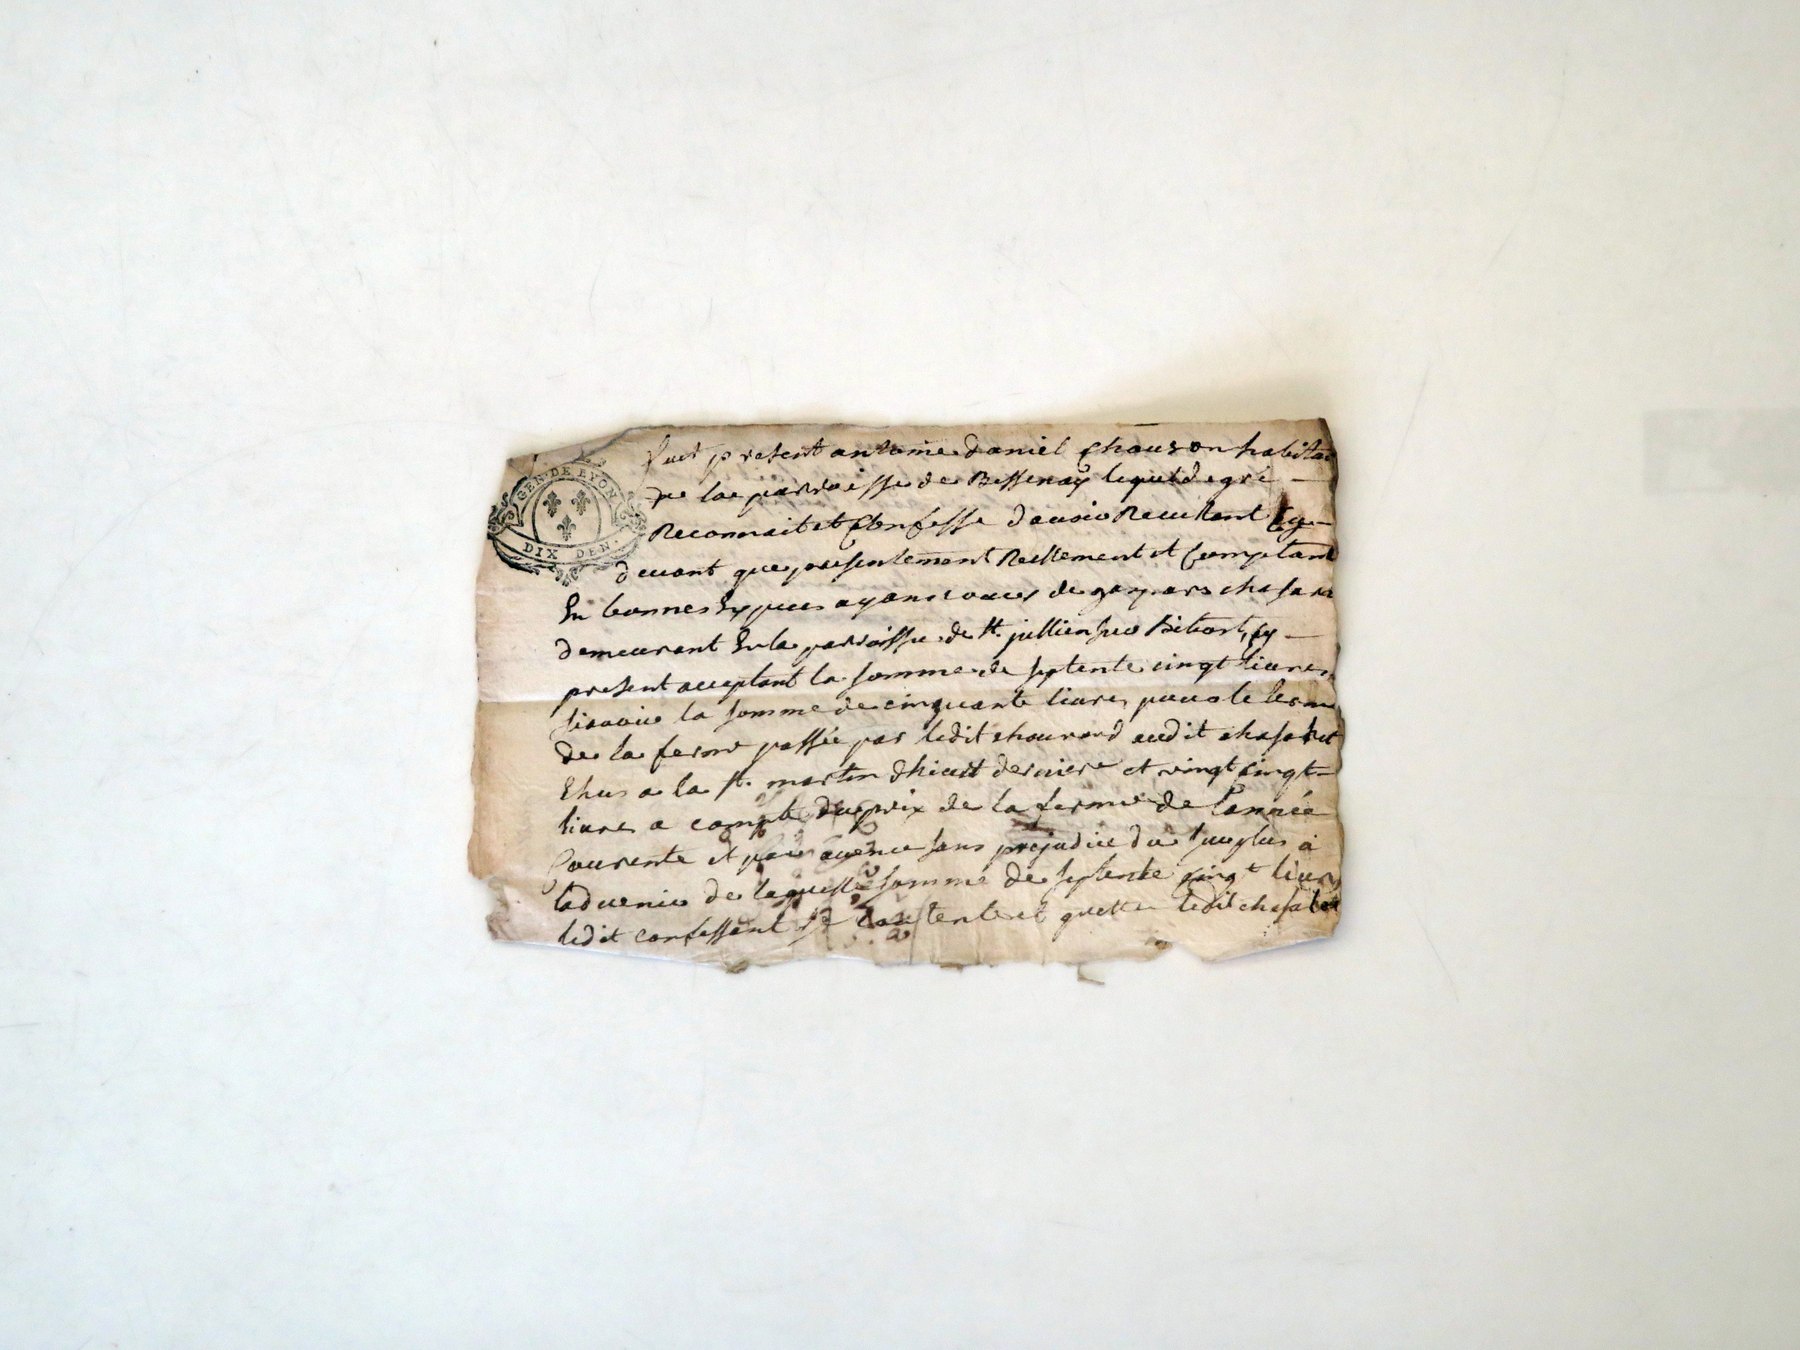 GEN. DE LYON
DIX DEN.
fut present antoine daniel chouson habitan
de la parroisse de Bessenay lequel de gré
Reconnait et Confesse dauoir Reeu tant cy
deuant que presentement Reellement et Comptant
En bonnes Especes ayans cours de
demeurant En la parroisse de st. jullien sur Bibost, cy
present acceptant la somme de septente cinqt liures
sçauoir la somme de cinquante liures pour le terme
de la ferme passée par ledit audit
Ehus a la st. martin dhiuert derniere et vingt cinqt
liures a compte du prix de la ferme de l'année
Courente et pour auence sans prejudice du surplus a
laduenir de laquelle somme de septente cinqt liures
ledit confessant se contente et quitte ledit